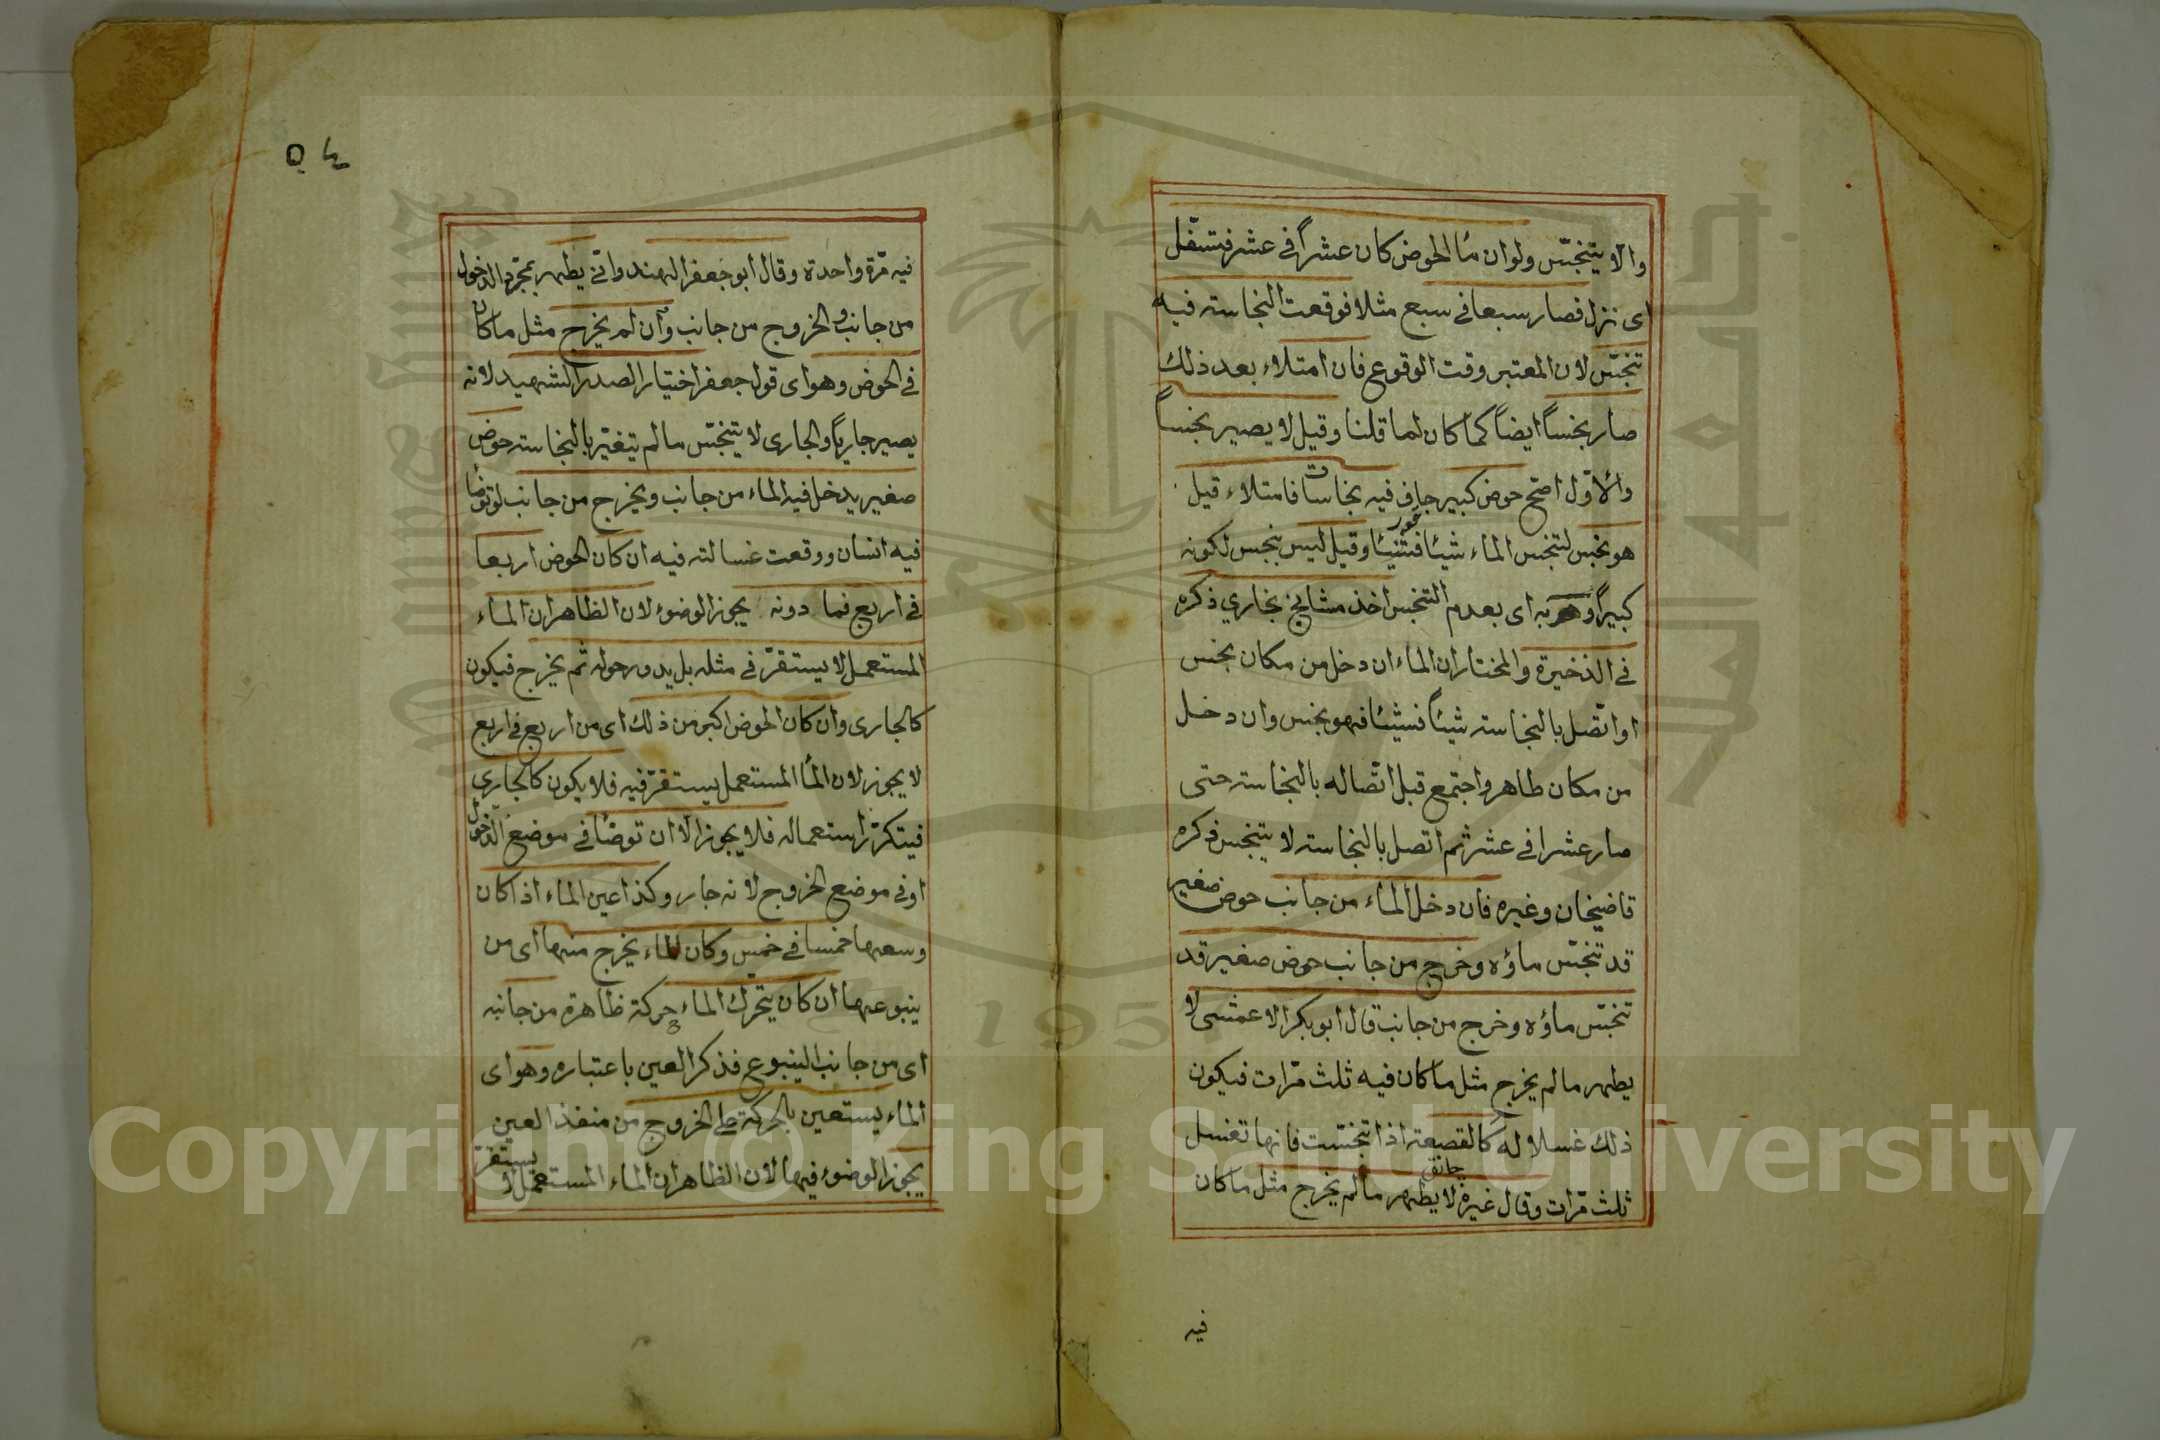 والا يتنجّس ولو ان ماء الحوض كان عشراً في عشر فتسفل
اى نزل فصار سبعا في سبع مثلا فوقعت النجاسة فيه
تنجّس لان المعتبر وقت الوقوع فان امتلاء بعد ذلك
صار نجساً ايضاً كما كان لما قلنا وقيل لا يصير نجساً
والاوّل اصح حوض كبير جاف فيه نجاسات فامتلاء قيل
هو نجس لتنجس الماء شيئا فشيئا وقيل ليس بنجس لكونه
كبيراً وبه اى بعدم التنجس اخذ مشايخ بخاري ذكره
في الذخيرة والمختار ان الماء ان دخل من مكان نجس
او اتّصل بالنجاسة شيئاً فشيئا فهو نجس وان دخل
من مكان طاهر واجتمع قبل اتّصاله بالنجاسة حتى
صار عشرا في عشر ثم اتصل بالنجاسة لا يتنجس ذكره
قاضيخان وغيره فان دخل الماء من جانب حوض صغير
قد تنجّس ماؤه وخرج من جانب حوض صغير قد
تنجّس ماؤه وخرج من جانب قال ابو بكر الاعمشى لا
يطهر ما لم يخرج مثل ما كان فيه ثلث مرّات فيكون
ذلك غسلا له كالقصعة اذا تنجّست فانها تغسل
ثلث مرّات وقال غيره لا يطهر ما لم يخرج مثل ما كان
فيه
فيه مرّة واحدة وقال ابو جعفر الهندوانى يطهر بمجرّد الدخول
من جانب والخروج من جانب وان لم يخرج مثل ما كان
في الحوض وهو اى قول جعفر اختيار الصدر الشهيد لانه
يصير جارياً والجارى لا يتنجّس ما لم يتغيّر بالنجاسة حوض
صغير يدخل فيه الماء من جانب ويخرج من جانب لو توضأ
فيه انسان ووقعت غسالته فيه ان كان الحوض اربعا
في اربع فما دونه يجوز الوضوء لان الظاهر ان الماء
المستعمل لا يستقرّ في مثله بل يدور حوله ثم يخرج فيكون
كالجارى وان كان الحوض اكبر من ذلك اى من اربع في اربع
لا يجوز لان الماء المستعمل يستقرّ فيه فلا يكون كالجارى
فيتكرّر استعماله فلا يجوز الا ان توضأ في موضع الدّخول
او في موضع الخروج لانه جار وكذا عين الماء اذا كان
وسعها خمسا في خمس وكان الماء يخرج منها اى من
ينبوعها ان كان يتحرك الماء حركة ظاهرة من جانبه
اى من جانب الينبوع فذكر العين باعتباره وهو اى
الماء يستعين بالحركة على الخروج من منفذ العين
يجوز الوضوء فيها لان الظاهر ان الماء المستعمل لا يستقرّ
Copyright © King Saud University
1957